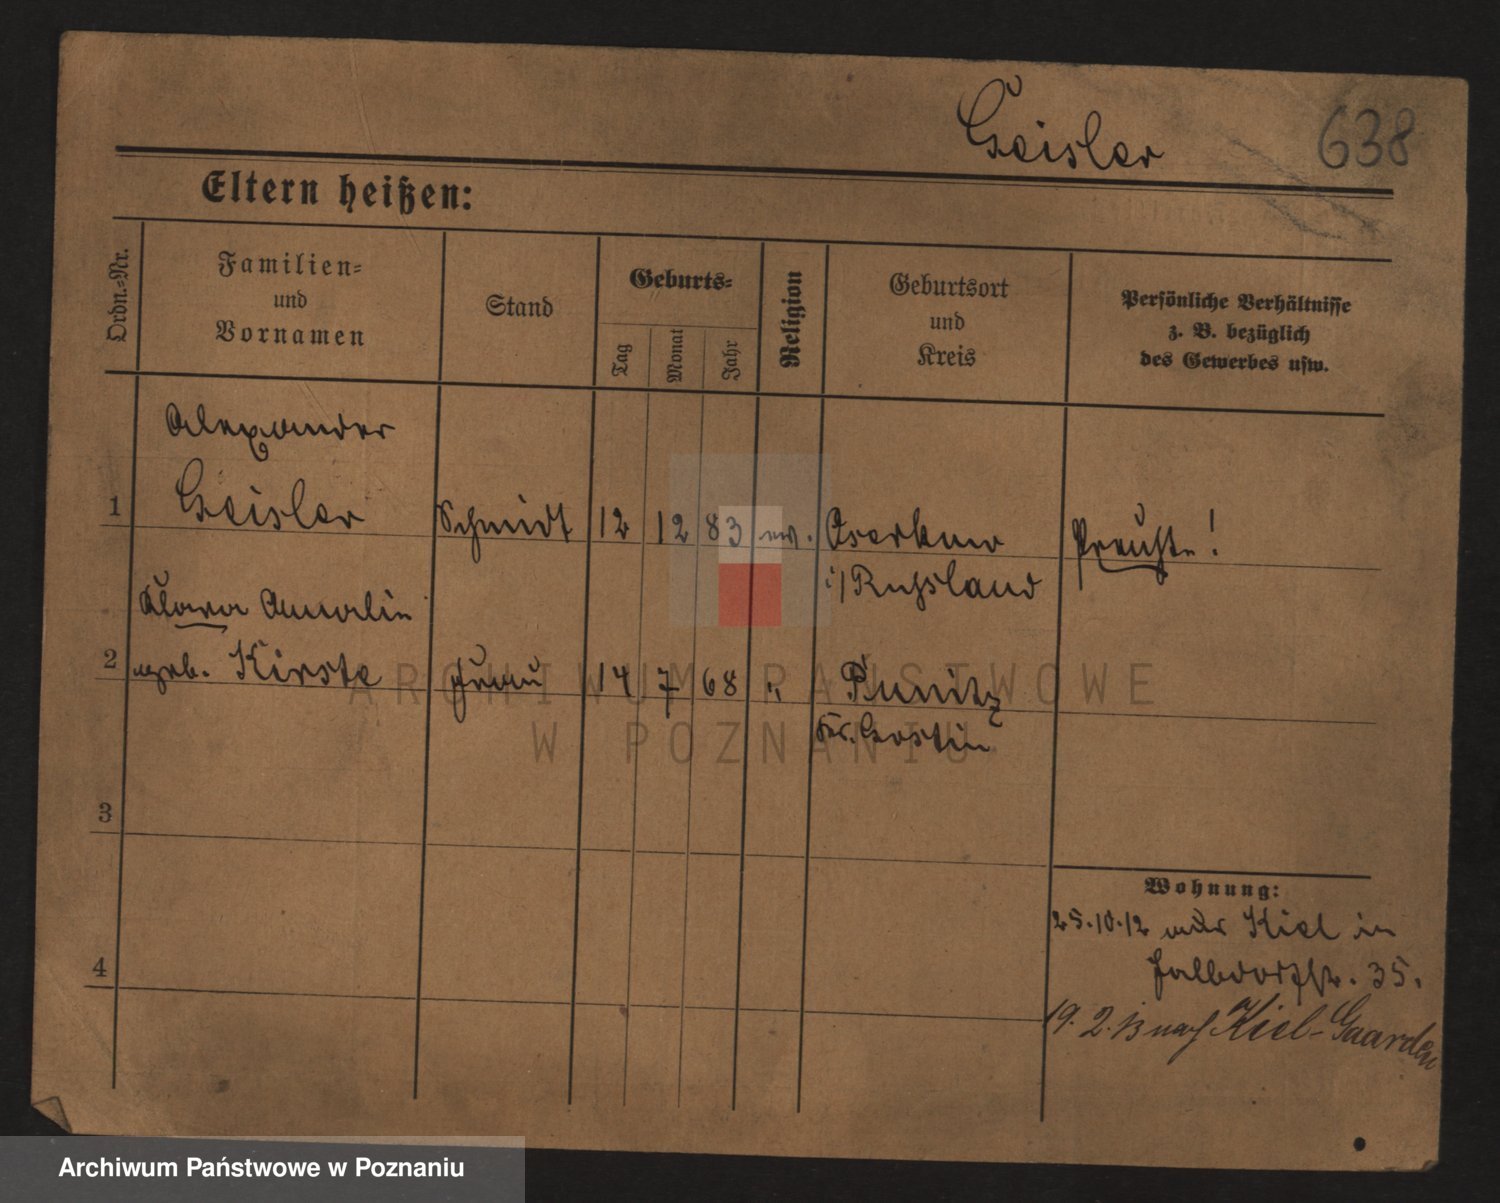 Geisler
638
Eltern heißen:
Ordn.=Nr.
Familien=
und
Vornamen
Stand
Geburts=
Tag
Monat
Jahr
Religion
Geburtsort
und
Kreis
Persönliche Verhältnisse
z. B. bezüglich
des Gewerbes usw.
Alexander
1 Geisler Schmidt 12 12 83 ev. Preußse!
i/ Russland
Klara Amalie
2 geb. Kirste Frau 14 7 68 " Punitz
Kr. Gostin
3
4
Wohnung:
25.10.12 aus Kiel in
35.
19. 2. 13 nach Kiel-Gaarden
ARCHIWUM PAŃSTWOWE
W POZNANIU
Archiwum Państwowe w Poznaniu